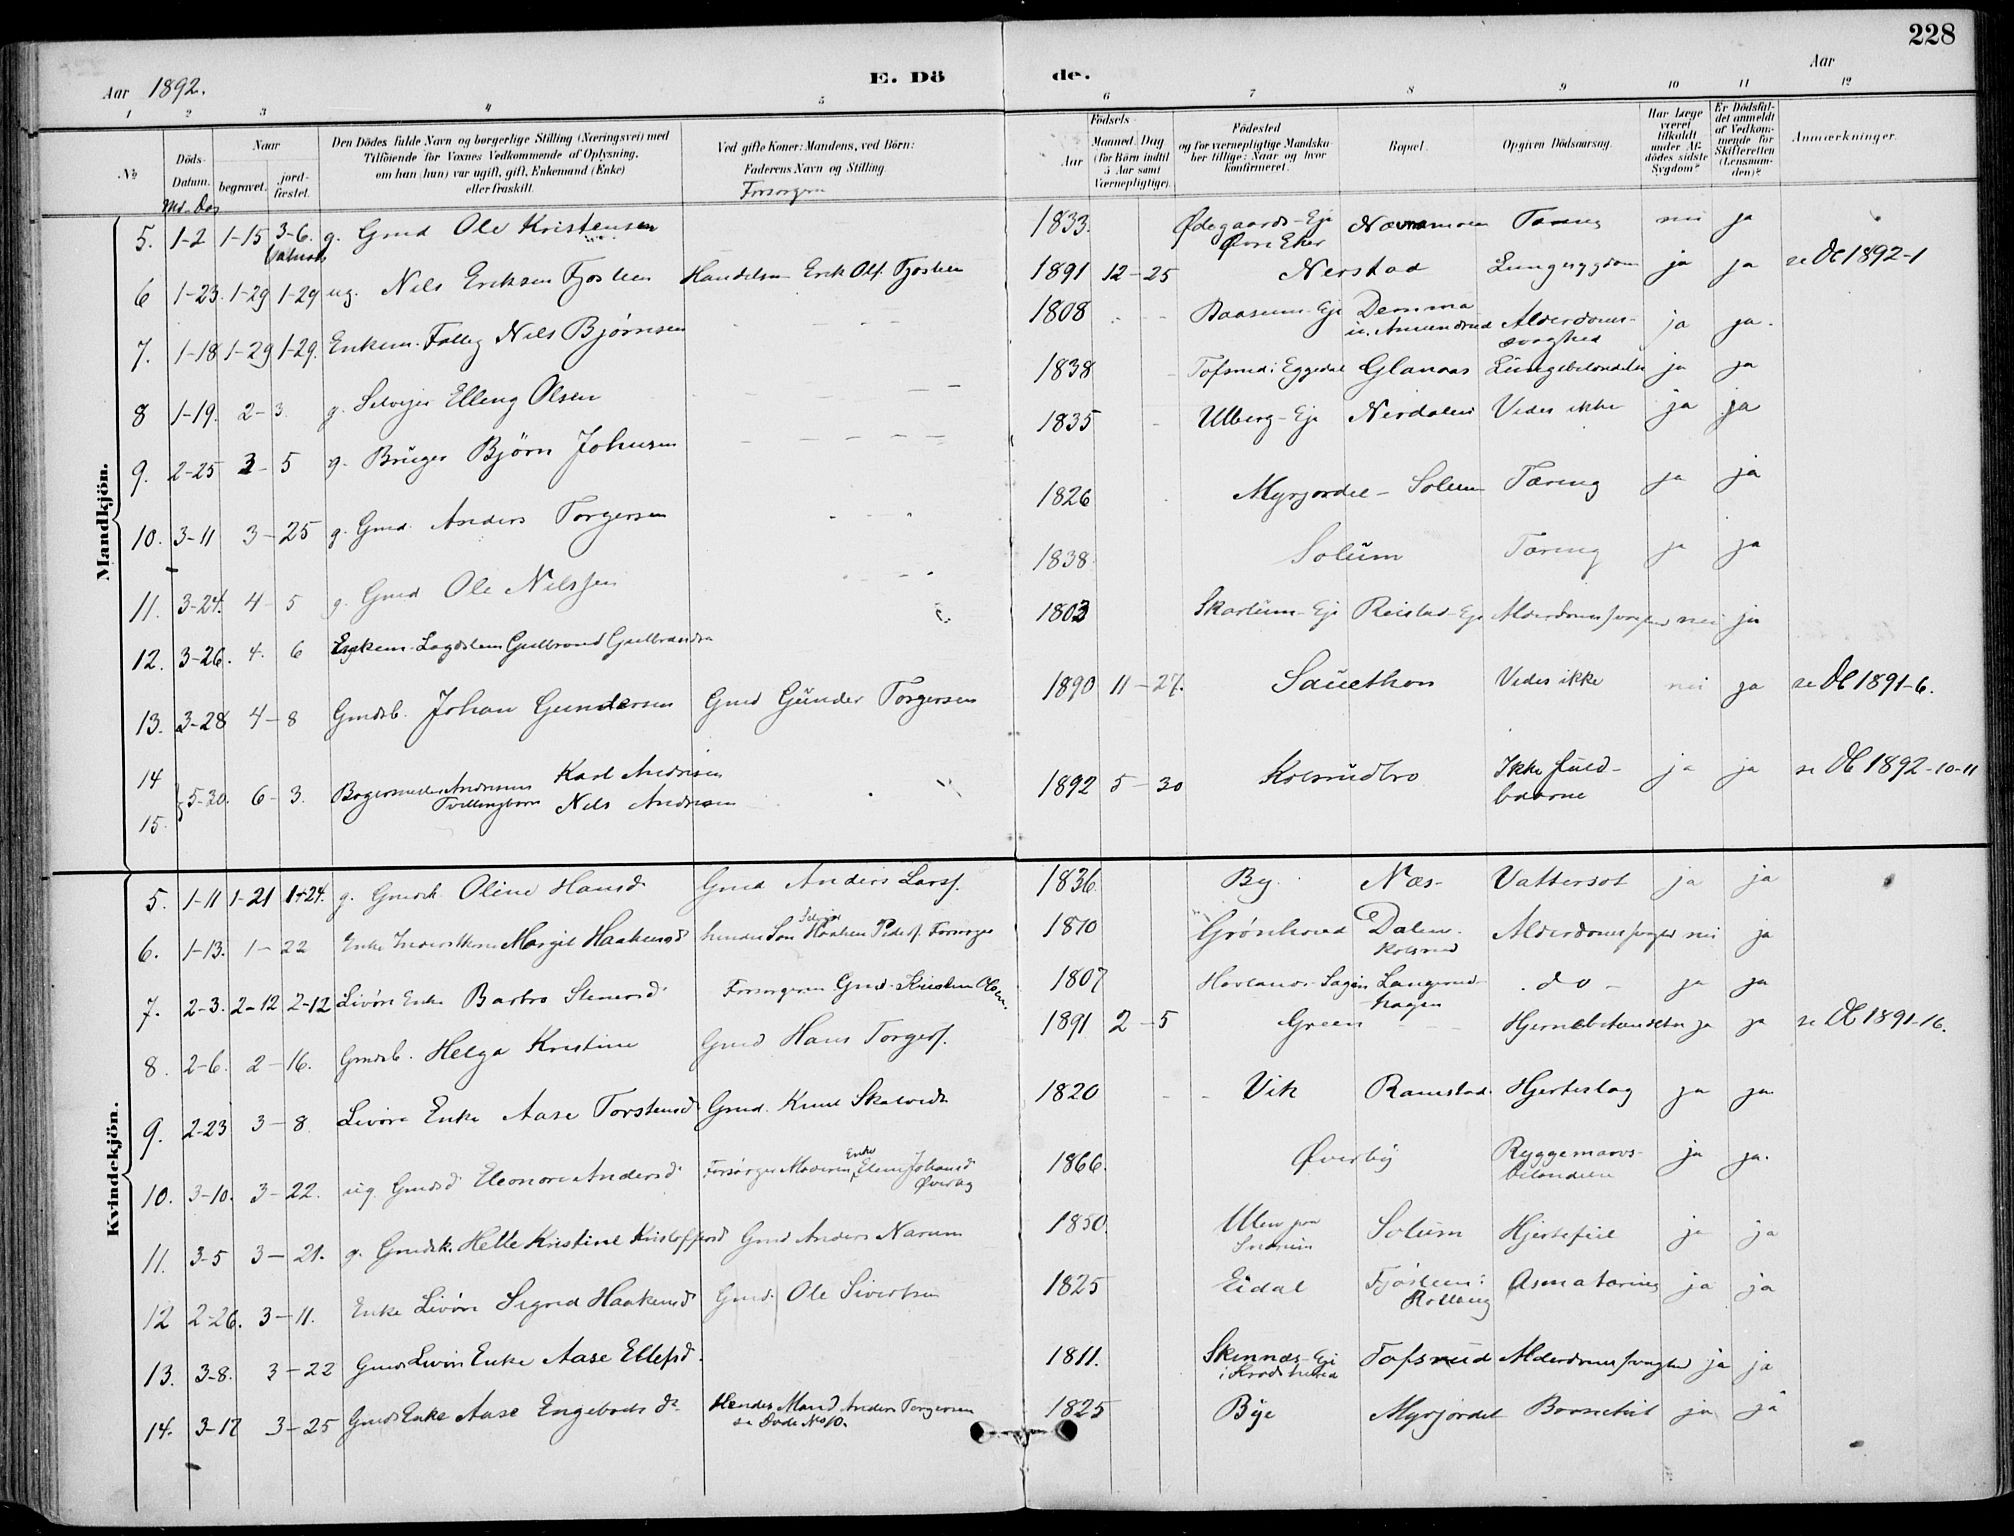 228
Aar 1892.
E. Dö de.
Aar
1 2 3 4 5 6 7 8 9 10 11 12
No
Döds-Datum.
Md. Dag
Naar
begravet.
jord-fæstet.
Den Dödes fulde Navn og borgerlige Stilling (Næringsvei) med
Tilföiende for Voxnes Vedkommende af Oplysning,
om han (hun) var ugift, gift, Enkemand (Enke)
eller fraskilt.
Ved gifte Koner: Mandens, ved Börn:
Faderens Navn og Stilling.
Forsorgere
Födsels-
Aar
Maaned. Dag
(for Börn indtil
5 Aar samt
Værnepligtige).
Födested
og for værnepligtige Mandska-
ber tillige: Naar og hvor
konfirmeret.
Bopæl.
Opgiven Dödsaarsag.
Har Læge
været
tilkaldt
under Af-
dödes sidste
Sygdom?
Er Dödsfal-
det anmeldt
af Vedkom-
mende for
Skifteretten
(Lensman-
den)?
Anmærkninger.
Mandkjön.
5. 1-2 1-15 3-6. g. Gmd Ole Kristensen 1833. Ødegaards-Eje Øvre Eker Næramoen Tæring nei ja
6 1-23. 1-29 1-29 ug. Nils Eriksen Fjøsteen Handelsm Erik Olf. Fjosteen 1891 12-25 Nerstad Lungesygdom ja ja se Db 1892-1
7. 1-18 1-29 1-29. Enkem. Fattig Nils Bjørnsen 1808 Baasum-Eje Demma u. Amundrud Alderdoms-svaghed ja ja.
8 1-19. 2-3. g. Selvejer Elling Olsen 1838 Tofsrud i Eggedal Glanaas Lungebetændelse ja ja
9. 2-25 3-5 g. Bruger Bjørn Johnsen 1835 Ulberg-Eje Nerdalen Vides ikke ja ja
10. 3-11 3-25 g. Gmd. Anders Torgersen 1826 Myrjordet - Solum Tæring ja ja
11. 3-24. 4-5 g. Gmd Ole Nilssen 1838 Solum Tæring ja ja
12. 3-26. 4. 6 Enkem. Lægdslem Gulbrand Gulbrandsen 1803 Skartum-Eje Reistad-Eje Alderdomssvaghed nei ja
13. 3-28 4-8 Gmdsb. Johan Gundersen Gmd Gunder Torgersen 1890 11-27. Sauethon Vides ikke nei ja se Db 1891-6.
14 15. 5-30. 6-3. Andersens Tvillingbørn Karl Andersen Nils Andersen 1892 5-30 Kolsrudbro Ikke fuld-baarne ja ja se Db 1892-10-11
Kvindekjön.
5. 1-11 1-21 1-24. g. Gmdsk Oline Hansd. Gmd Anders Larsf. 1836 By. Næs- Vattersot ja ja
6. 1-13. 1-22 Enke Inderstkone Margit Haakensd hendes Søn Selvejer Haaken Pedersf. Forsorger 1810 Grønhovd Dalen. Kolsrud Alderdomssvaghed nei ja
7. 2-3. 2-12 2-12 Livøre Enke Barbro Stenersd Forsorgeren Gmd. Kristen Olsen. 1807 Hovlands-Sagen Langerud hagen do - ja ja
8. 2-6. 2-16. Gmdsb. Helga Kristine Gmd Hans Torgersf. 1891 2-5 Green Hjernebetændelse ja ja se Db 1891-16.
9. 2-23 3-8. Livøre Enke Aase Torstensd Gmd. Knut Skalvedt 1820 Vik Ramstad. Hjerteslag ja ja.
10. 3-10. 3-22. ug. Gmdsd Eleonore Andersd Forsørger Moderen, Enke Eline Johansd Øverby 1866. Øverby Ryggemarvs-betændelse ja ja.
11. 3-5 3-21. g. Gmdsk. Helle Kristine Kristoffersd Gmd Anders Narum 1850 Ulen paa Snarum Solum Hjertefeil ja ja
12 2-26. 3-11. Enke Livøre Sigrid Haakensd Gmd. Ole Sivertsen 1825 Eidal Fjøsteen: Rolleug Asma tæring ja ja
13. 3-8. 3-22 Gmds Livøre Enke Aase Ellefsd. 1811. Skinnæs-Eje i Krødsherad Tofsrud Alderdomssvaghed ja ja
14. 3-17 3-25 Gmds Enke Aase Engebretsdr. Hendes Mand Anders Torgersen se Døde No 10. 1825 Bye Myrjordet ja ja